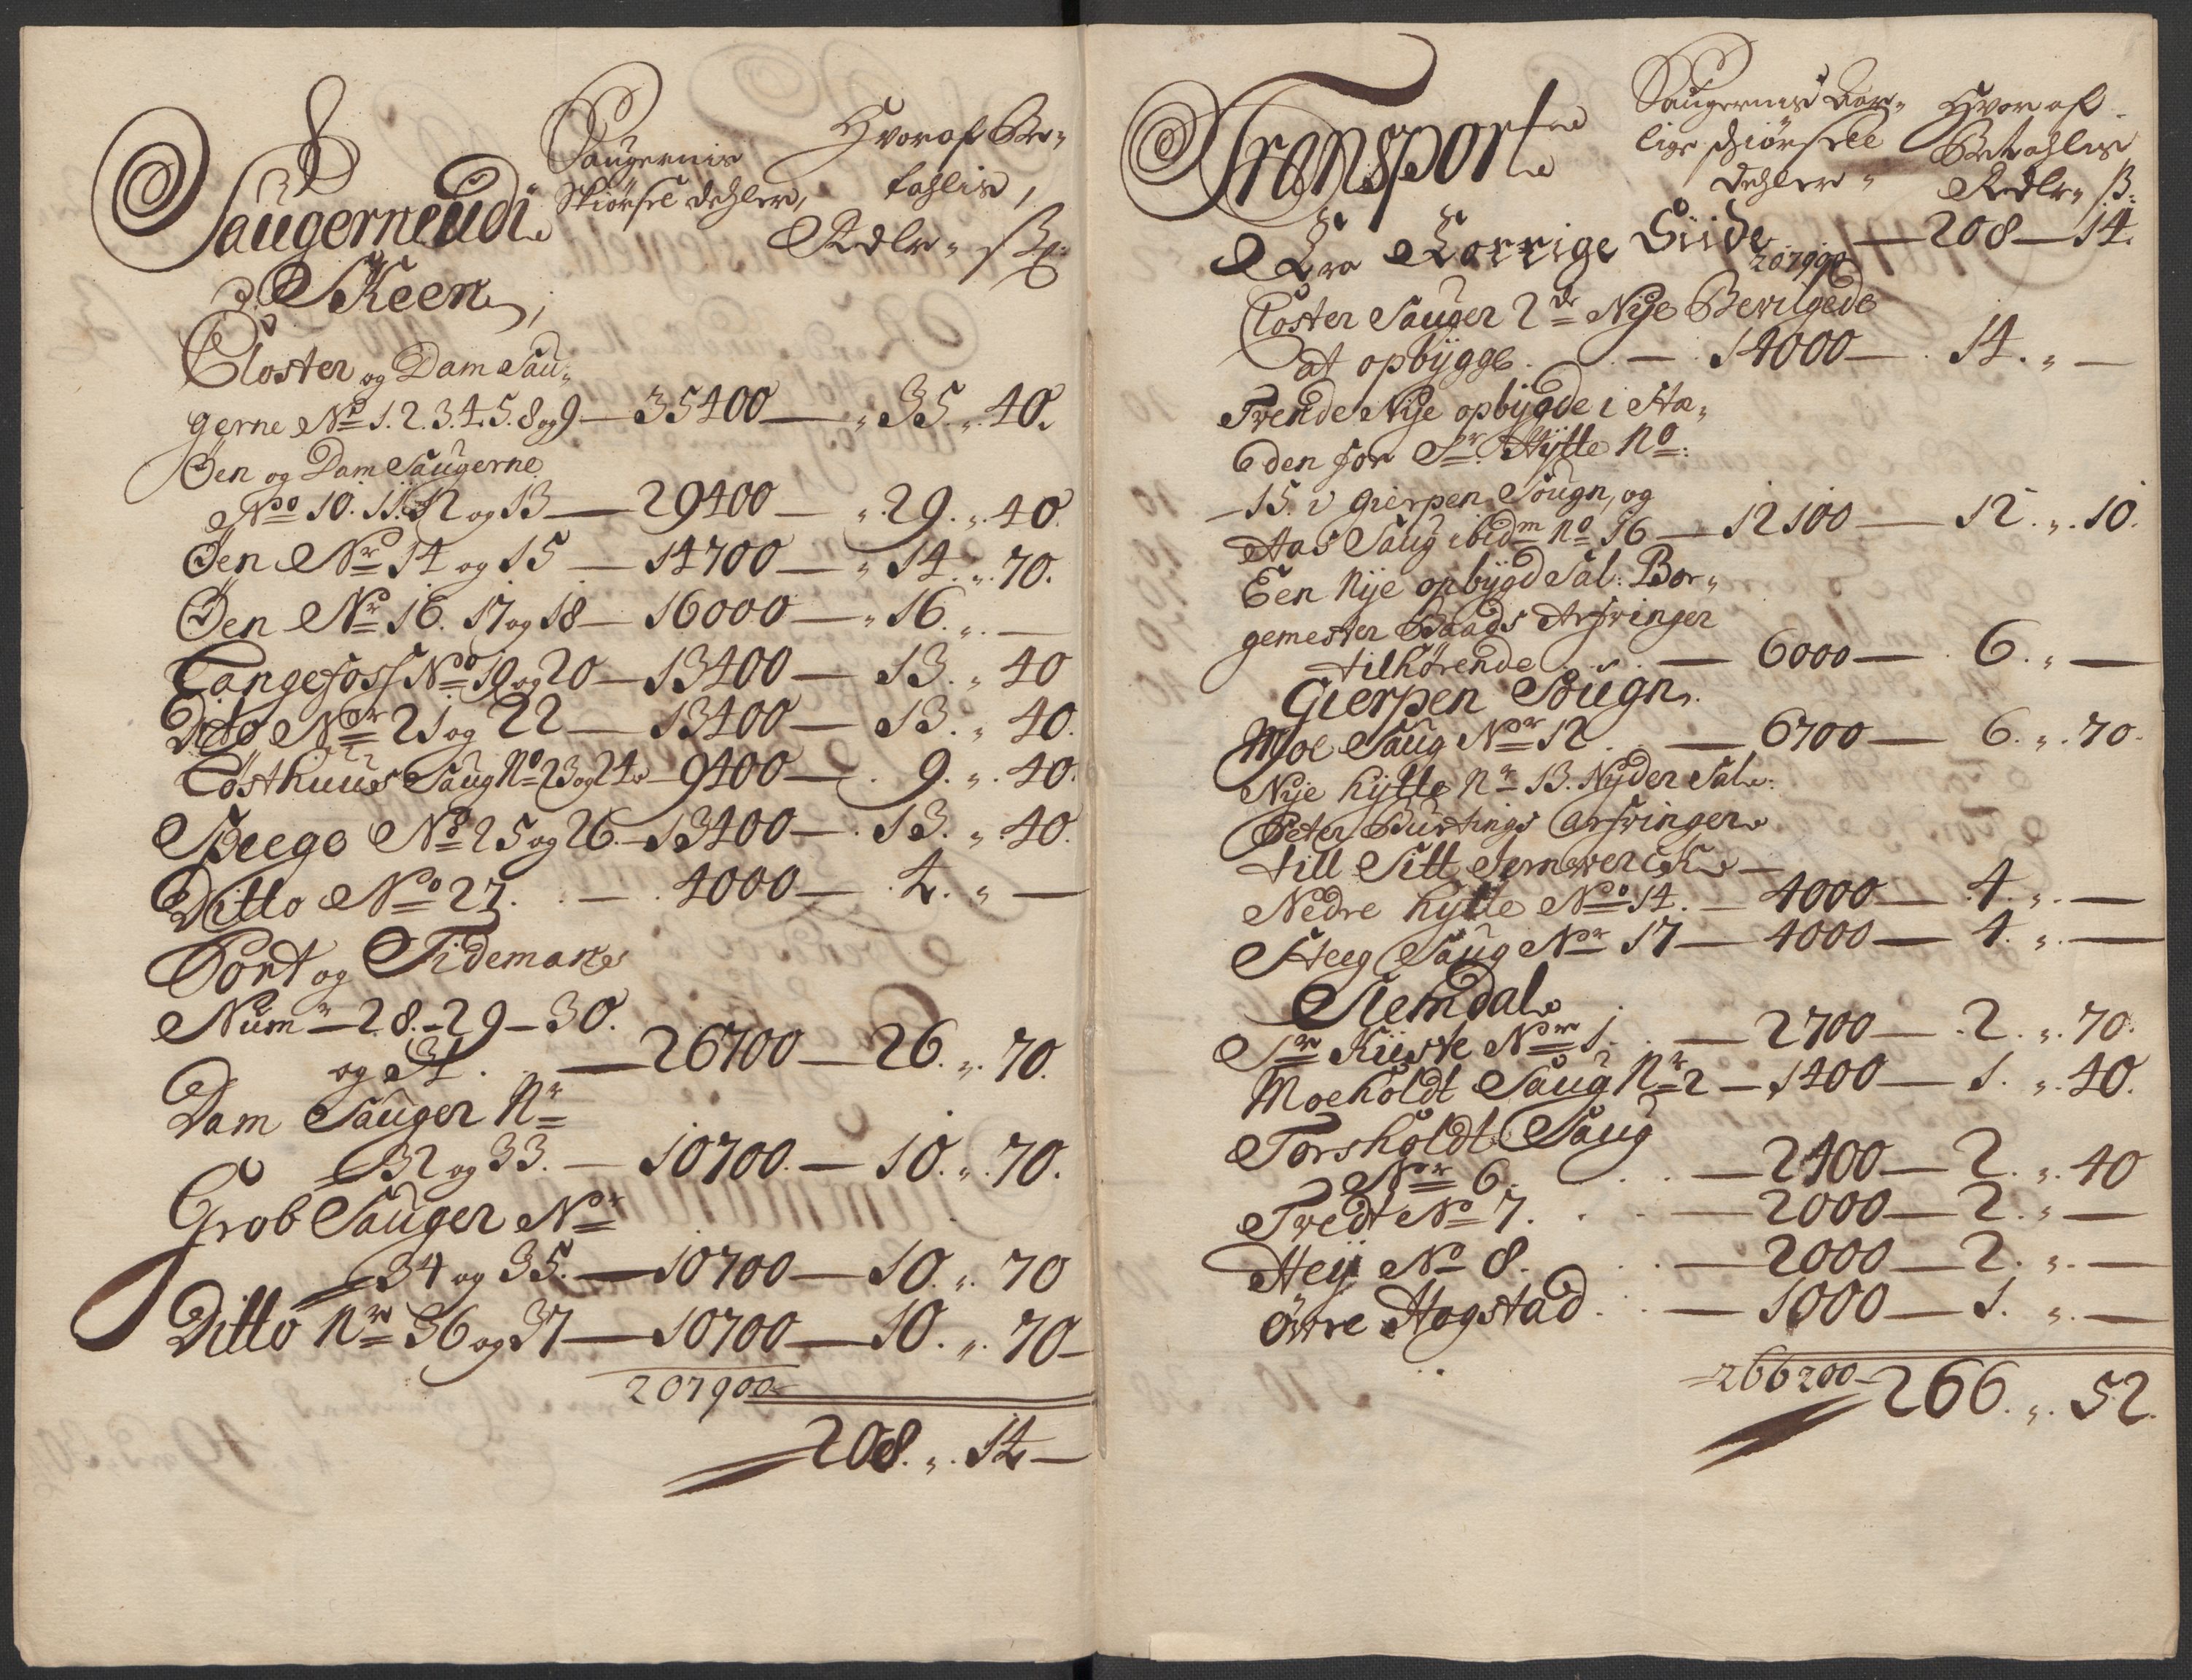 Saugerne udi
Skeen
Saugernis
Skiörsel dehlers,
Hvoraf Be-
tahlis,
Rdlr. ß:
Closter og Dam Sau-
gerne No 1. 2. 3. 4. 5. 8 og 9 — 35400 — „ 35. „ 40.
Øen og Dam Saugerne
No 10. 11. 12 og 13 — 29400 — „ 29. „ 40.
Øen Nr 14 og 15 — 14700 — „ 14. „ 70.
Øen Nr 16. 17 og 18 — 16000 — „ 16. „ —
Langefoss No 19 og 20 — 13400 — 13. „ 40
Dito Nr 21 og 22 — 13400 — 13. „ 40.
Costhuus Saug No 23 og 24 — 9400 — 9. „ 40.
Beege No 25 og 26 — 13400 — 13. „ 40.
Ditto No 27. — 4000 — 4. „ —
Port og Tidemans
Numr — 28. — 29 — 30.
og 31. — 26700 — 26. „ 70.
Dam Sauger Nr
32 og 33. — 10700. — 10. „ 70.
Grob Sauger Nr
34 og 35. — 10700 — 10. „ 70
Ditto Nr 36 og 37 — 10700 — 10. „ 70 —
207900
208. „ 14 —
Transport
Saugernis Aar-
lige skiörsell
dehler
Hvoraf
Betahlis
Rdlr. ß:
Fra Forrige Siide 207900 — 208 — 14.
Closter Sauger 2de Nye Bevilgede
at opbygge. — 14000 — 14. „ —
Trende Nye opbygde i Sta-
eden for Sr. Hytte No:
15. i Gierpen Sougn, og
Aas Saug ibidm no 16 — 12100 — 12. „ 10.
Een Nye opbygd Sal: Bor-
gemester Baads Arfvinger
tilhørende — 6000 — 6. „ —
Gierpen Sougn.
Moe Saug Nr 12. — 6700 — 6. „ 70.
Nye hytte Nr 13. Nyder Sal:
Peter Bustings arfvinger
till Sitt Jernverck —
Nedre hytte No 14. — 4000 — 4. „ —
Steeg Saug Nr 17 — 4000 — 4. „ —
Slemdal
Sr Kiiste Nr 1. — 2700 — 2. „ 70.
Moeholdt Saug Nr 2 — 1400 — 1. „ 40.
Torsholdt Saug
Nr 6. — 2400 — 2. „ 40
Tvedt No 7. — 2000 — 2. „ —
Hey No 8. — 2000 — 2. „ —
Øvre Hogstad. — 1000 — 1. „ —
266200 — 266. „ 52.